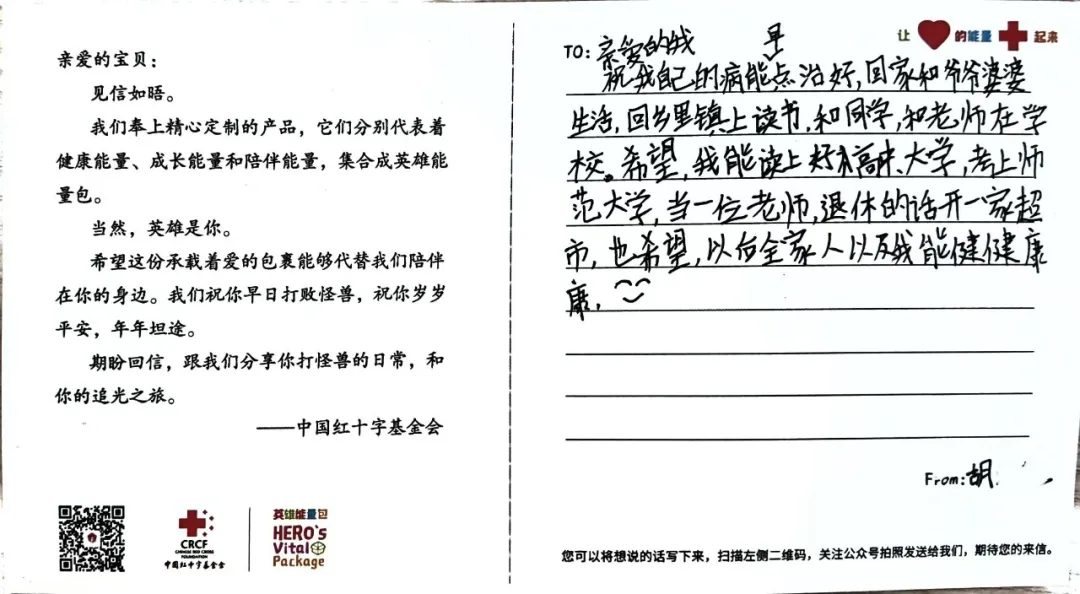 亲爱的宝贝：
见信如晤。
我们奉上精心定制的产品，它们分别代表着
健康能量、成长能量和陪伴能量，集合成英雄能
量包。
当然，英雄是你。
希望这份承载着爱的包裹能够代替我们陪伴
在你的身边。我们祝你早日打败怪兽，祝你岁岁
平安，年年坦途。
期盼回信，跟我们分享你打怪兽的日常，和
你的追光之旅。
——中国红十字基金会
CRCF
CHINESE RED CROSS
FOUNDATION
中国红十字基金会
英雄能量包
HERO's
Vital
Package
让 的能量 起来
TO: 亲爱的我
早
祝我自己的病能点治好,回家和爷爷婆婆
生活,回乡里镇上读书,和同学,和老师在学
校。希望,我能读上好高中、大学,考上师
范大学,当一位老师,退休的话开一家超
市,也希望,以后全家人以及我能健健康
康.
From:胡
您可以将想说的话写下来，扫描左侧二维码，关注公众号拍照发送给我们，期待您的来信。